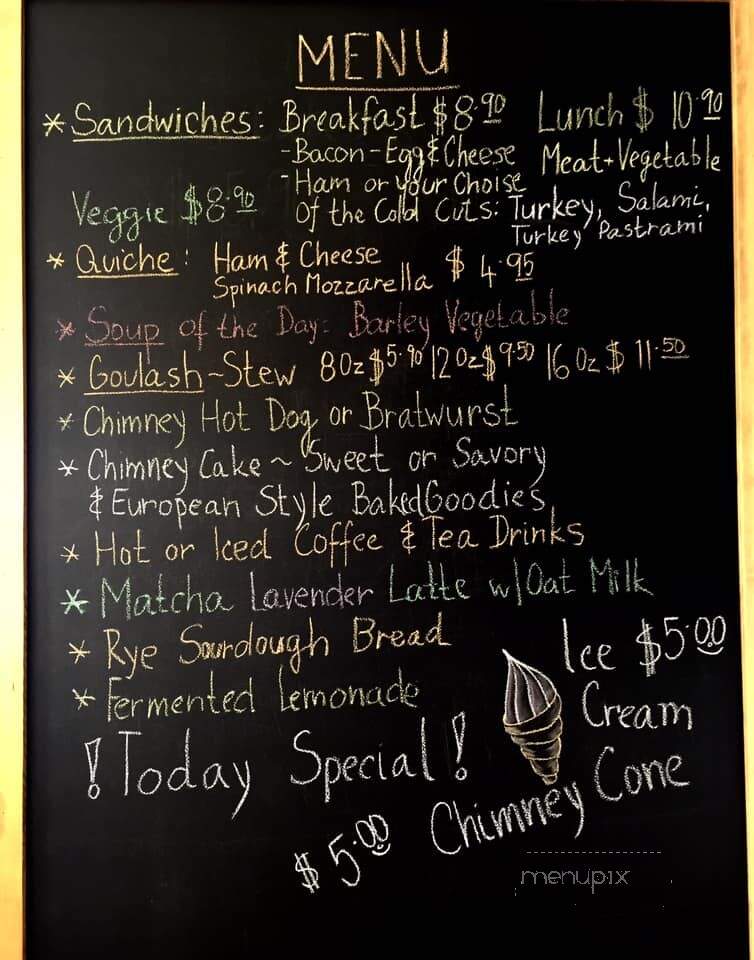 MENU
* Sandwiches: Breakfast $8.90 Lunch $ 10.90
-Bacon-Egg & Cheese Meat+Vegetable
-Ham or your Choise
Veggie $8.90 Of the Cold Cuts: Turkey, Salami,
Turkey Pastrami
* Quiche: Ham & Cheese $ 4.95
Spinach Mozzarella
* Soup of the Day: Barley Vegetable
* Goulash~Stew 8Oz $5.90 12Oz $9.50 16Oz $ 11.50
* Chimney Hot Dog or Bratwurst
* Chimney Cake ~ Sweet or Savory
& European Style Baked Goodies
* Hot or Iced Coffee & Tea Drinks
* Matcha Lavender Latte w/Oat Milk
* Rye Sourdough Bread
* Fermented Lemonade
Ice $5.00
Cream
! Today Special !
$ 5.00 Chimney Cone
menupix